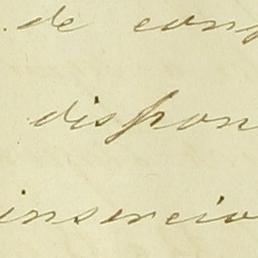 de cons
dispon
insercio